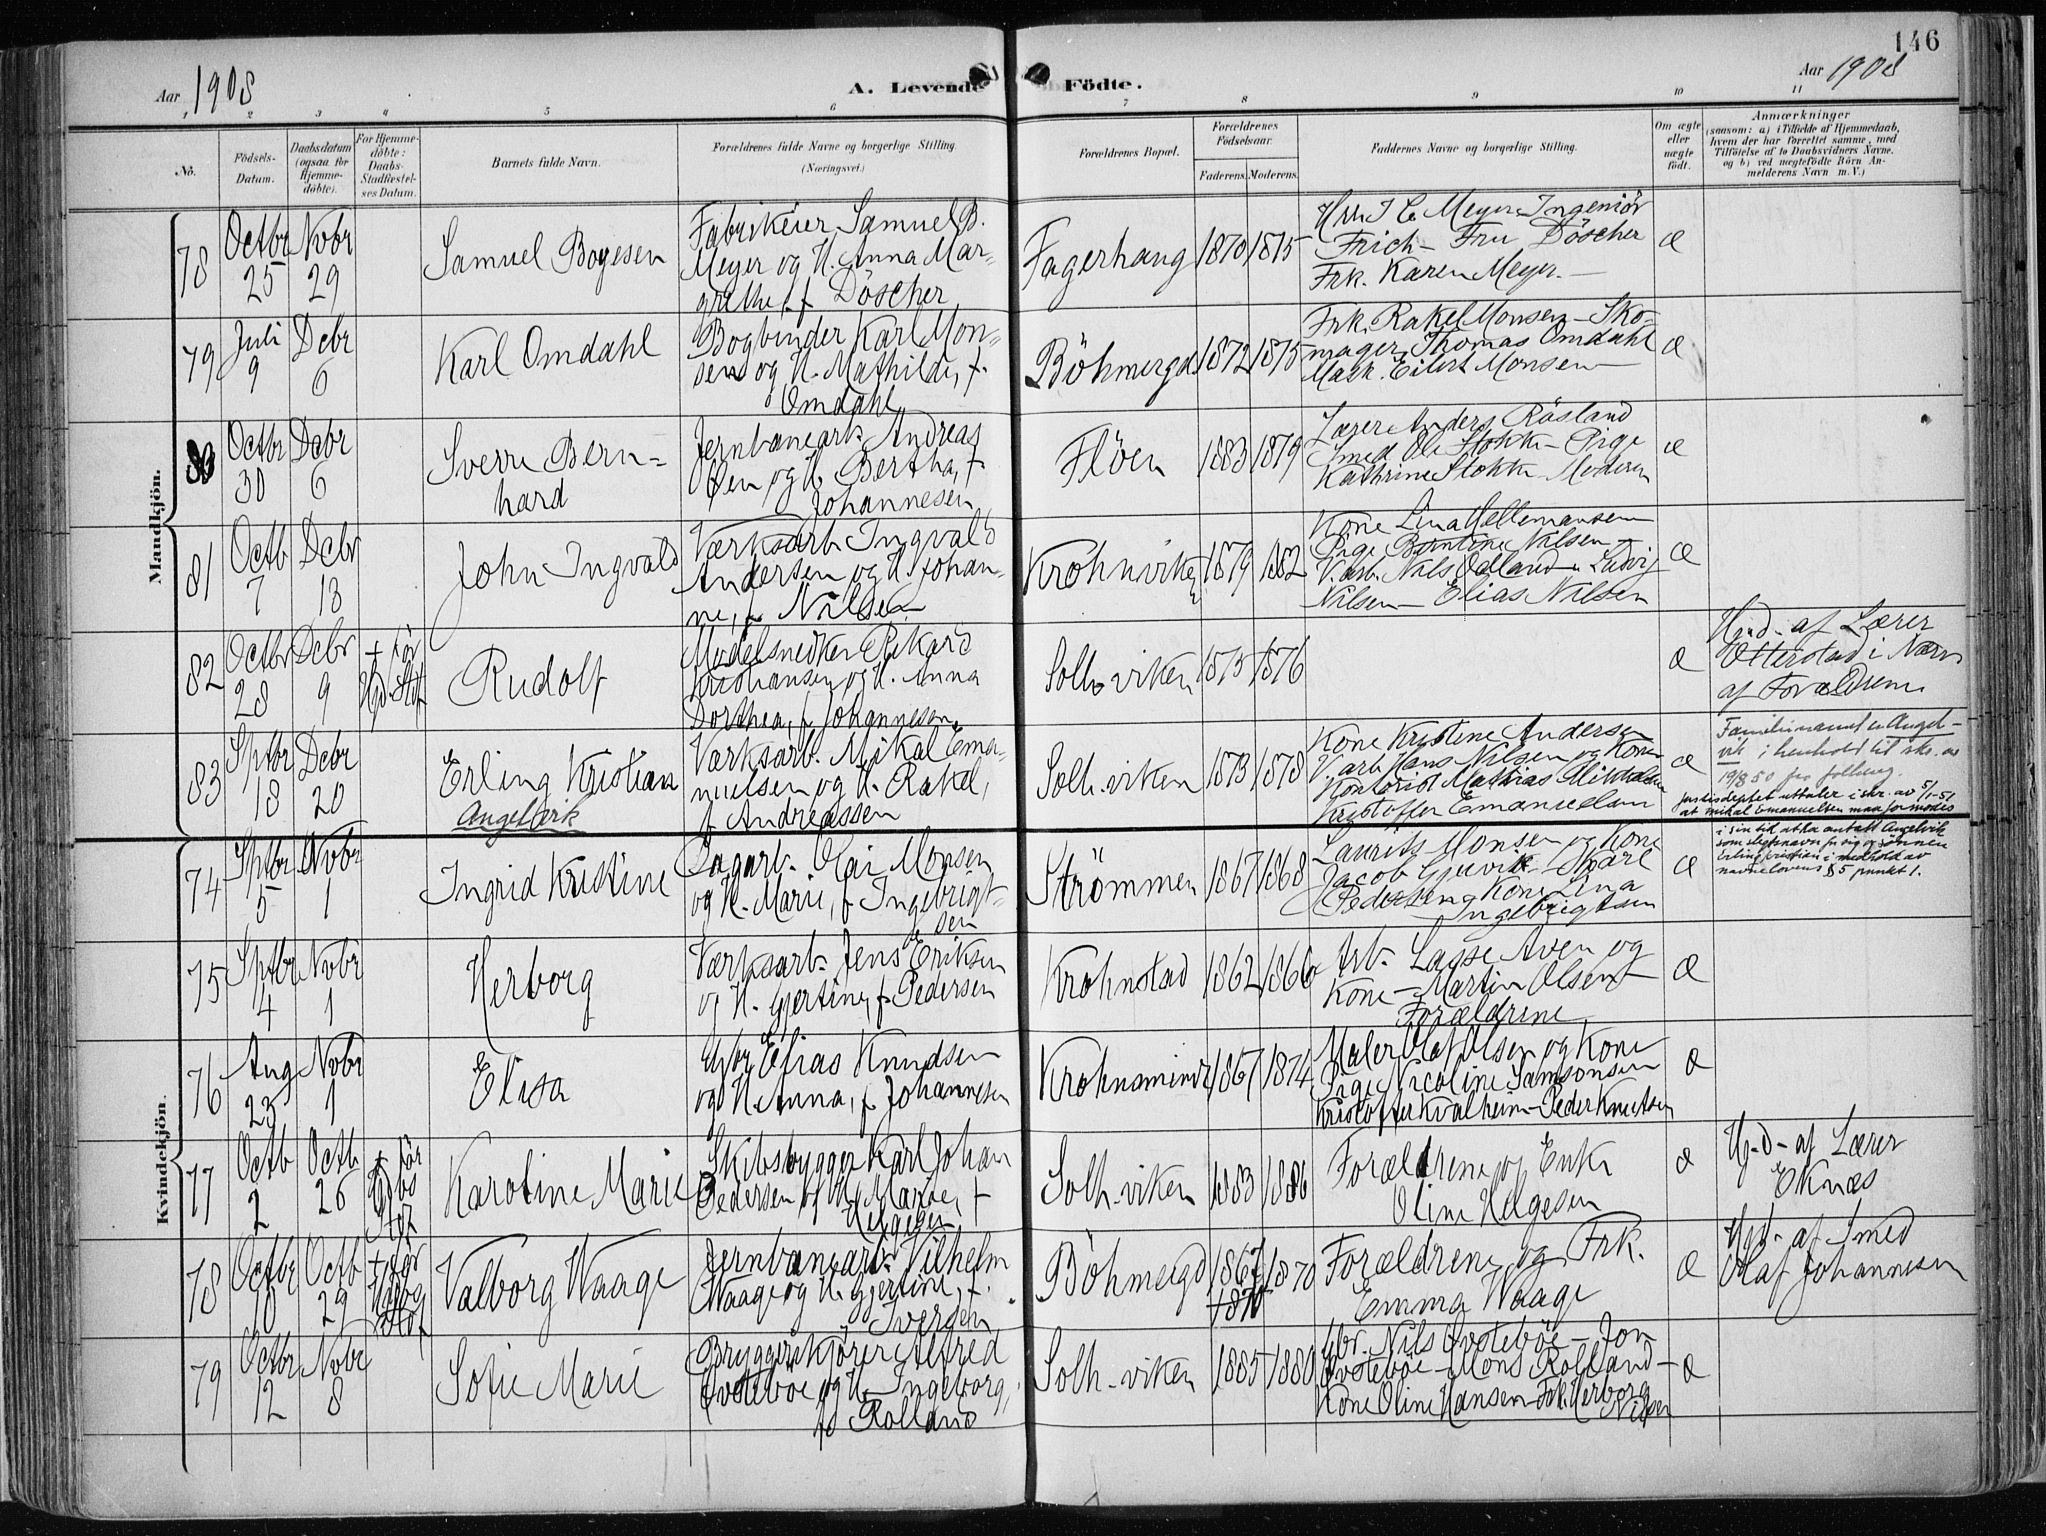 146
Aar 1908
A. Levende Födte.
Aar 1908
1 2 3 4 5 6 7 8 9 10 11
No.
Födsels-Datum.
Daabsdatum (ogsaa for Hjemmedöbte).
For Hjemmedöbte: Daabs-Stadfæstelses Datum.
Barnets fulde Navn.
Forældrenes fulde Navne og borgerlige Stilling. (Næringsvei.)
Forældrenes Bopæl.
Forældrenes Födselsaar.
Faderens. Moderens.
Faddernes Navne og borgerlige Stilling.
Om ægte eller uægte födt.
Anmærkninger
(saasom: a) i Tilfælde af Hjemmedaab, hvem der har forrettet samme, med Tilföielse af to Daabsvidners Navne. og b) ved uegtefödte Börn Anmelderens Navn m. V.)
Mandkjön.
78 Octbr 25 Novbr 29
Samuel Boyesen
Fabrikeier Samuel B.
Meyer og H. Anna Mar-
grethe, f. Döscher
Fagerhaug 1870 1875
Hrr. J C Meyer Ingeniör
Frich - Fru Döscher
Frk. Karen Meyer. -
æ
79 Juli 9 Debr 6
Karl Omdahl
Bogbinder Karl Mon-
sen og H. Mathilde, f.
Omdahl
Böhmergd 1872 1875
Frk. Rakel Monsen - Sko-
mager Thomas Omdahl
Mask. Eilert Monsen
æ
80 Octbr 30 Debr 6
Sverre Bern-
hard
Jernbanearb. Andreas
Öen og H. Bertha, f.
Johannesen
Flöen 1883 1879
Lærer Anders Rösland
Smed Ole Stokke - Pige
Kathrine Stokke - Moderen
æ
81 Octb 7 Debr 13
John Ingvald
Værksarb. Ingvald
Andersen og H. Johan-
ne, f. Nilsen
Krohnviken 1879 1882
Kone Lina Hellemansen
Pige Berntine Nilsen
V.arb. Nils Odland - Ludvig
Nilsen - Elias Nilsen
æ
82 Octbr 28 Debr 9
+ för Hjd. Stf
Rudolf
Modelsnedker Rikard
Kristiansen og H. Anna
Dorthea, f. Johannesen
Solh.viken 1875 1876
æ
Hjd - af Lærer
Otterstad i Nærv
af Forældrene
83 Septbr 18 Debr 20
Erling Kristian
Angelvik
Værksarb. Mikal Ema-
nuelsen og H. Rakel,
f. Andreassen
Solh.viken 1873 1878
Kone Kristine Andersen
V.arb. Hans Nilsen og Kone
Kontorist Mathias Mikkelsen
Kristoffer Emanuelsen
æ
Familienavnet er Angel-
vik i henhold til skr. av
19/8 50 fra fylkesmg.
Justisdeptet uttaler i skr. av 5/1-51
at Mikal Emanuelsen maa formodes
i sin tid at ha antatt Angelvik
som slegtsnavn for sig og sønnen
Erling Kristian i medhold av
navnelovens § 5 punkt 1.
Kvindekjön.
74 Septbr 5 Novbr 1
Ingrid Kristine
Dagarb. Olai Monsen
og H. Marie, f. Ingebrigt-
sen
Strömmen 1867 1868
Laurits Monsen og Kone
Jacob Gjervik - Karl
Pedersen Kone Lina
Ingebrigtsen
æ
75 Septbr 4 Novbr 1
Herborg
Værksarb. Jens Eriksen
og H. Gjertine, f. Pedersen
Krohnstad 1862 1866
Arb. Lasse Aven og
Kone - Martin Olsen
Forældrene
æ
76 Aug 23 Novbr 1
Elisa
Elias Knudsen
og H. Anna, f. Johannesen
Krohnsminde 1867 1874
Maler Olaf Olsen og Kone
Pige Nicoline Samsonsen
Kristoffer Kvalheim - Peder Knutsen
æ
77 Octb 2 Octb 26
+ för
Karoline Marie
Skibsbygger Karl Johan
Pedersen og H. Marie, f.
Helgesen
Solh.viken 1883 1886
Forældrene og Enke
Oline Helgesen
æ
Hj-d - af Lærer
Eknæs
78 Octbr 10 Octb 29
+ för
Valborg Waage
Jernbanearb. Vilhelm
Waage og H. Gjertine, f.
Iversen
Böhmergd 1867 1870
+ 1870
Forældrene og Frk.
Emma Waage
æ
Hjd - af Smed
Olaf Johannesen
79 Octbr 12 Novbr 8
Sofie Marie
Bryggerikjörer Alfred
Övsteböe og H. Ingeborg,
f. Rolland
Solh-viken 1885 1880
Gbr. Nils Övsteböe - Jon
Övsteböe - Mons Rolland -
Kone Oline Hansen - Frk. Herborg
Nilsen
æ